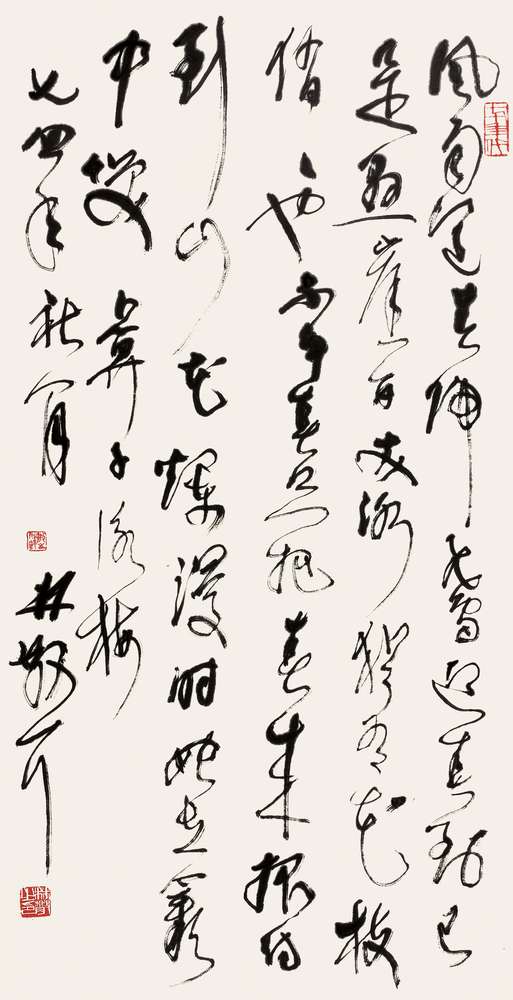 風雨送春歸飛雪迎春到已
是懸崖百丈冰猶有花枝
俏俏也不爭春只把春來報待
到山花爛漫時她在叢
中笑 卜算子 詠梅
七四年秋八月 林散耳